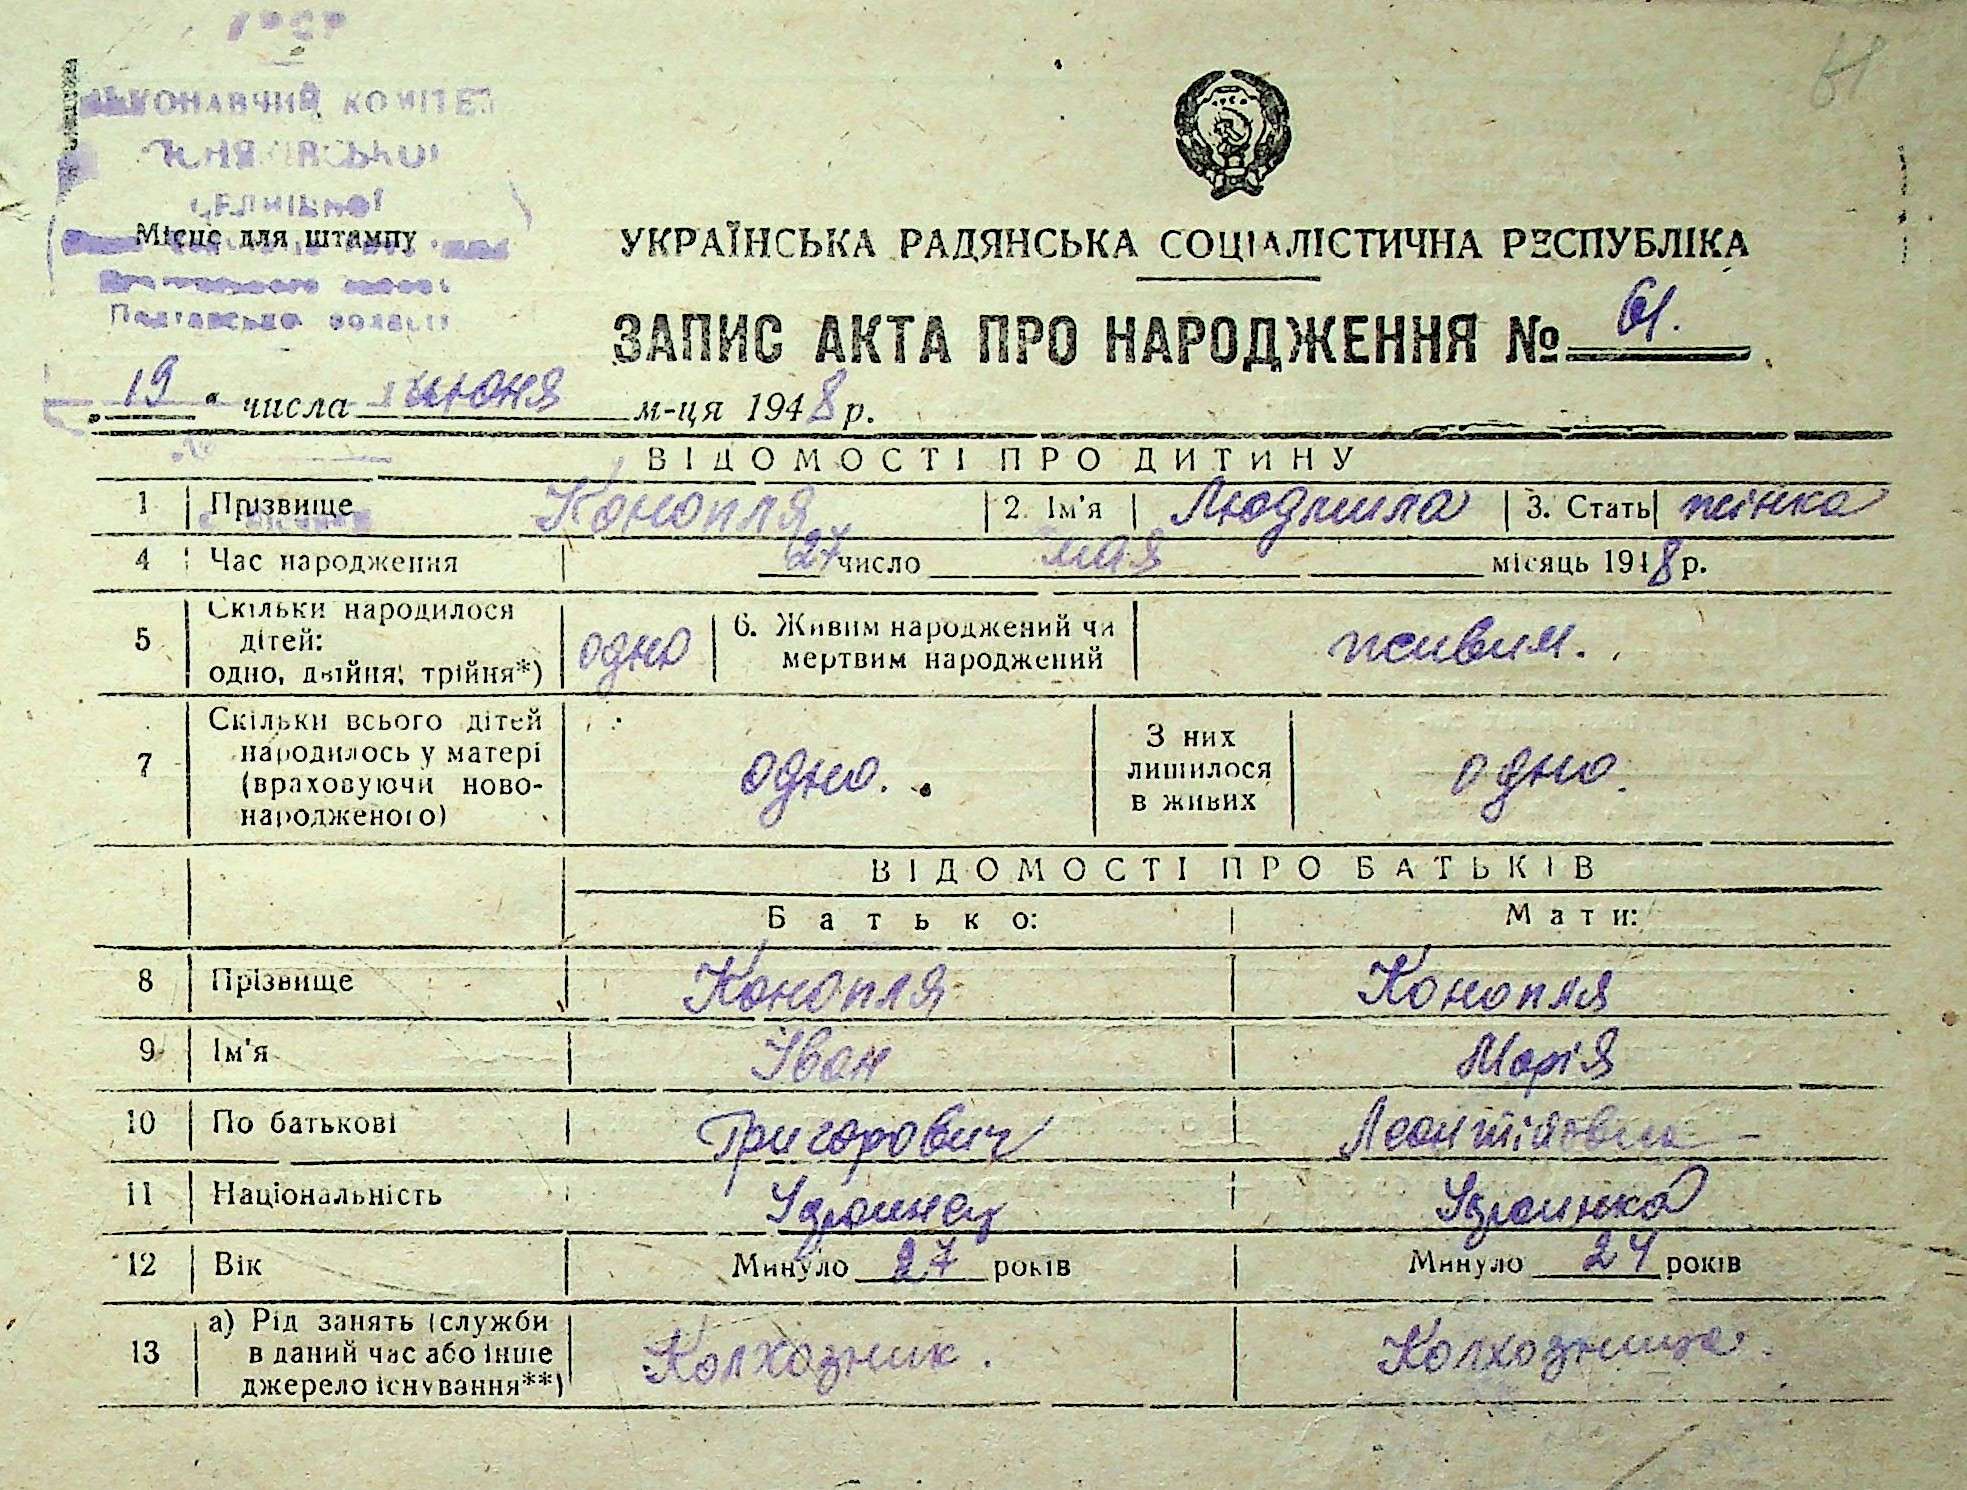 61
УРСР
ВИКОНАВЧИЙ КОМІТЕТ
Місце для штампу
Полтавської області
УКРАЇНСЬКА РАДЯНСЬКА СОЦІАЛІСТИЧНА РЕСПУБЛІКА
ЗАПИС АКТА ПРО НАРОДЖЕННЯ № 61.
„19“ числа июня м-ця 1948 р.
ВІДОМОСТІ ПРО ДИТИНУ
1 Прізвище Конопля 2. Ім'я Людмила 3. Стать жінка
4 Час народження 27 число мая місяць 1948 р.
5 Скільки народилося дітей: одно, двійня, трійня*) одно 6. Живим народжений чи мертвим народжений живим.
7 Скільки всього дітей народилось у матері (враховуючи новонародженого) одно. З них лишилося в живих одно.
ВІДОМОСТІ ПРО БАТЬКІВ
Батько: Мати:
8 Прізвище Конопля Конопля
9 Ім'я Іван Марія
10 По батькові Григорович Леонтіївна
11 Національність Українец Українка
12 Вік Минуло 27 років Минуло 24 років
13 а) Рід занять (служби в даний час або інше джерело існування**) Колхозник. Колхозница.